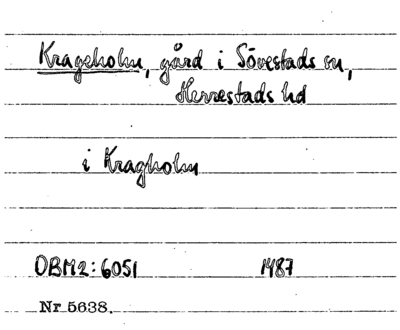 Krageholm, gård i Sövestads sn,
Herrestads hd
i Kragholm
OBM2:6051 1487
Nr 5638.